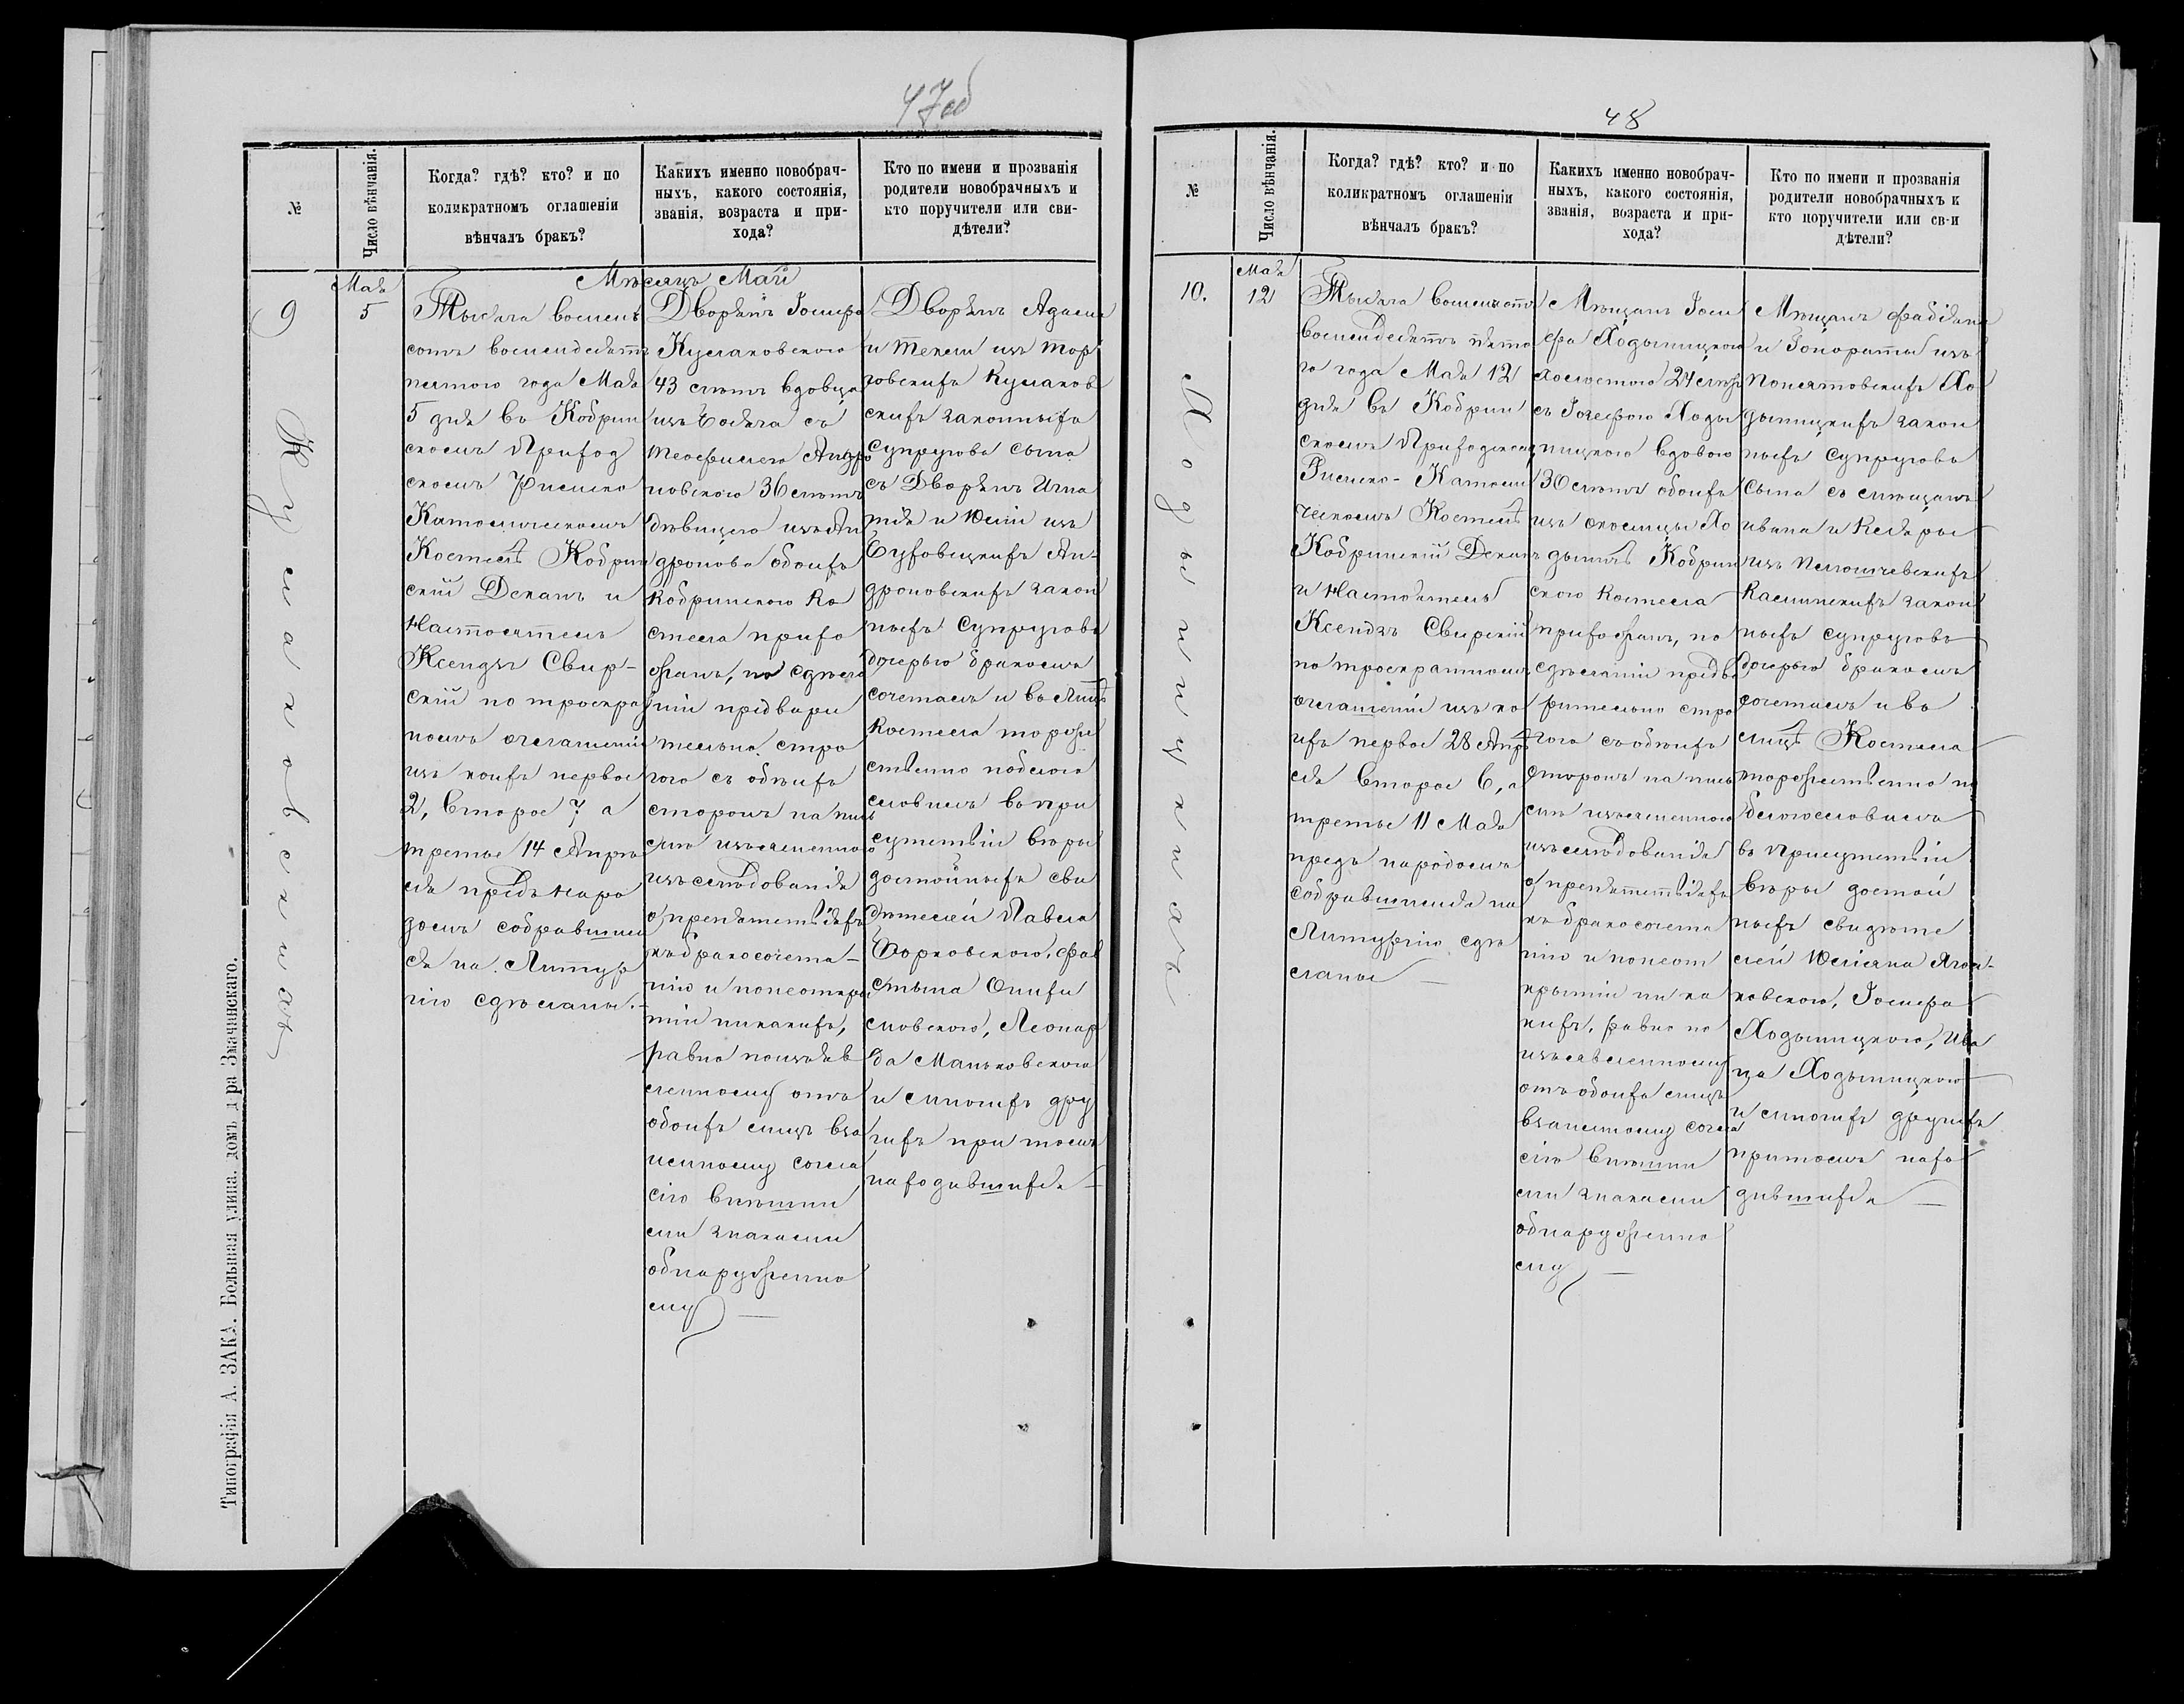 47об
№
Число вѣнчанія.
Когда? гдѣ? кто? и по
коликратномъ оглашеніи
вѣнчалъ бракъ?
Какихъ именно новобрач-
ныхъ, какого состоянія,
званія, возраста и при-
хода?
Кто по имени и прозванія
родители новобрачныхъ и
кто поручители или сви-
дѣтели?
Мѣсяцъ Май
9
Мая
5
Кумаковскихъ
Тысяча восемь
сотъ восемдесятъ
пятого года Мая
5 дня въ Кобрин
скомъ Приход
скомъ Римско
Католическомъ
Костелѣ Кобрин
скій Деканъ и
Настоятель
Ксендзъ Свир-
скій по троекра
номъ оглашеніи
изъ коихъ первое
2, второе 7 а
третье 14 Апрѣ
ля предъ наро
домъ собравшим
ся на Литур
гію сдѣланы.-
Дворянъ Іосифа
Кумаковского
43 лѣтъ вдовца
изъ съ
Теофилею Андро
новского 36 лѣтъ
дѣвицею изъ Ан
дронова обоихъ
Кобринского Ко
стела прихо
жанъ, по сдѣла
ніи предвари
тельно стро
гого съ обѣихъ
сторонъ на пись
мѣ изъясненного
изслѣдованія
о препятствіяхъ
къ бракосочета-
нію и по неоткры
тіи никакихъ,
равно по изъяв
ленному отъ
обоихъ лицъ вза
имному согла
сію внѣшни
ми знаками
обнаруженно
му —
Дворянъ Адама
и Текли изъ Тор
говскихъ Кумаков
скихъ законныхъ
супруговъ сына
съ Дворянъ Игна
тія и Юліи изъ
Ан-
дроновскихъ закон
ныхъ супруговъ
дочерью бракомъ
сочеталъ и въ лицѣ
Костела торже
ственно побласо
словилъ въ при
сутствіи вѣры
достойныхъ сви
дѣтелей Павла
Фав
стына
Леонар
да Маньковского
и многихъ дру
гихъ при томъ
находившихся —
Типографія А. ЗАКА. Большая улица, домъ д-ра Значанскаго.
48
№
Число вѣнчанія.
Когда? гдѣ? кто? и по
коликратномъ оглашеніи
вѣнчалъ бракъ?
Какихъ именно новобрач-
ныхъ, какого состоянія,
званія, возраста и при-
хода?
Кто по имени и прозванія
родители новобрачныхъ и
кто поручители или св-и
дѣтели?
10.
Мая
12
Ходыницкихъ
Тысяча восемьсотъ
восемдесятъ пято
го года Мая 12
дня въ Кобрин
скомъ Приходском
Римско-Католи
ческомъ Костелѣ
Кобринскій Деканъ
и Настоятель
Ксендзъ Свирскій
по троекратномъ
оглашеніи изъ ко
ихъ первое 28 Апрѣ
ля второе 6, а
третье 11 Мая
предъ народомъ
собравшимся на
Литургію сдѣ
ланы —
Мѣщанъ Іоси
фа Ходыницкого
холостого 24 лѣтъ
съ Іозефою Ходы
ницкого вдовою
30 лѣтъ обоихъ
изъ околицы Хо
дыничъ Кобрин
ского Костела
прихожанъ, по
сдѣланіи предва
рительно стро
гого съ обѣихъ
сторонъ на пись
мѣ изъясненного
изслѣдованія
о препятствіяхъ
къ бракосочета
нію и по неот
крытіи ни ка
кихъ, равно по
изъявленному
отъ обоихъ лицъ
взаимному согла
сію внѣшни
ми знаками
обнаруженно
му —
Мѣщанъ Фабіана
и Гонораты изъ
Понятовскихъ Хо
дыницкихъ закон
ныхъ супруговъ
сына съ мѣщанъ
Ивана и
изъ
закон
ныхъ супруговъ
дочерью бракомъ
сочеталъ и въ
лицѣ Костела
торжественно по
благословилъ
въ присутствіи
вѣры достой
ныхъ свидѣте
лей Юліана Ягол-
ковского, Іосифа
Ходыницкого, Ива
на Ходыницкого
и многихъ другихъ
при томъ нахо
дившихся —